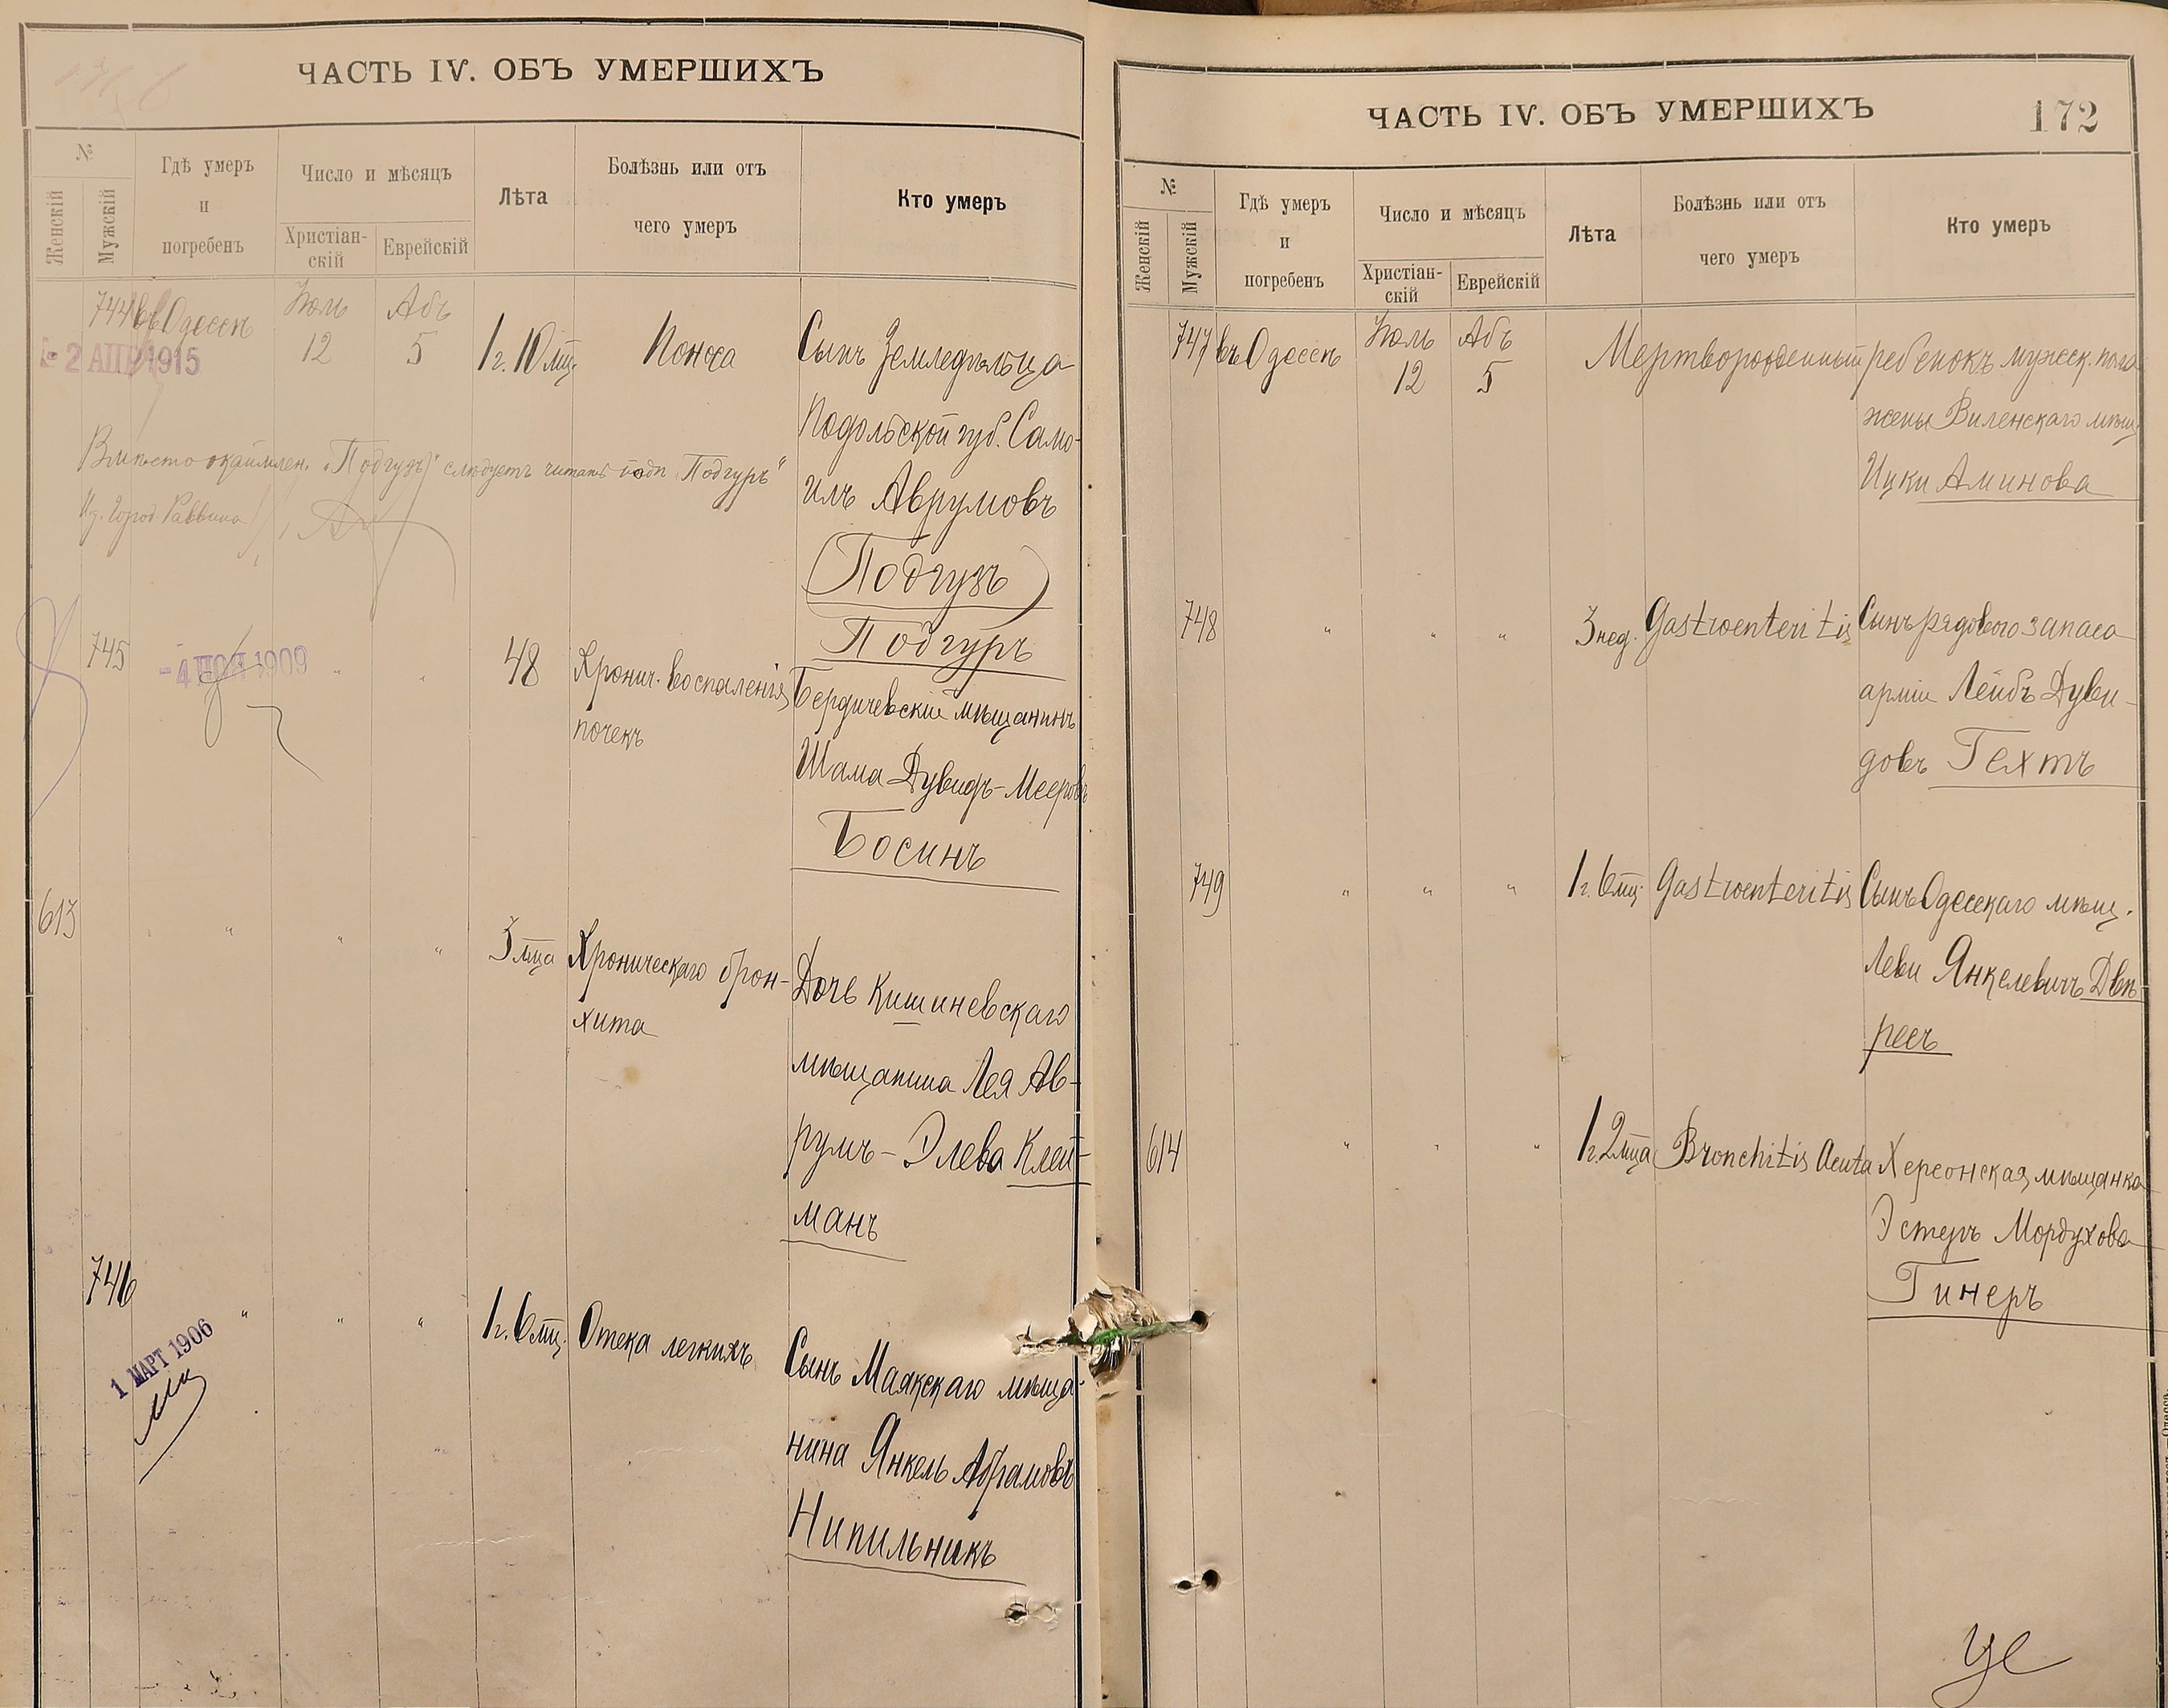 ЧАСТЬ IV. ОБЪ УМЕРШИХЪ
№
Женскій
Мужскій
Гдѣ умеръ
и
погребенъ
Число и мѣсяцъ
Христіан-
скій
Еврейскій
Лѣта
Болѣзнь или отъ
чего умеръ
Кто умеръ
744
въ Одессѣ
Іюль
12
Абъ
5
1 г. 10 мц.
Поноса
Сынъ Земледѣльца
Подольской губ. Само-
илъ Аврумовъ
(Подгузъ)
Подгуръ
2 АПР 1915
Вмѣсто окаймлен. „Подгузъ" слѣдуетъ читать „Подгуръ"
И. д. Город. Раввина
745
-4 1909
"
"
48
Хронич. воспаленія
почекъ
Бердичевскій мѣщанинъ
Шама Дувидъ-Мееровъ
Босинъ
613
"
"
"
3 мца
Хроническаго брон-
хита
Дочь Кишиневскаго
мѣщанина Лея Ав-
румъ-Элева Клей-
манъ
746
"
"
"
1 г. 6 мц.
Отека легкихъ
Сынъ Маякскаго мѣща-
нина Янкель Абрамовъ
Нипильникъ
1 МАРТ 1906
ЧАСТЬ IV. ОБЪ УМЕРШИХЪ
172
№
Женскій
Мужскій
Гдѣ умеръ
и
погребенъ
Число и мѣсяцъ
Христіан-
скій
Еврейскій
Лѣта
Болѣзнь или отъ
чего умеръ
Кто умеръ
747
въ Одессѣ
Іюль
12
Абъ
5
Мертворожденный ребенокъ мужск. пола
жены Виленскаго мѣщ.
Ицки Аминова
748
"
"
"
3 нед.
Gastroenteritis
Сынъ рядового запаса
арміи Лейбъ Дуви-
довъ Гехтъ
749
"
"
"
1 г. 6 мц.
Gastroenteritis
Сынъ Одесскаго мѣщ.
Леви Янкелевичъ Двѣ-
ресъ
614
"
"
"
1 г. 2 мца
Bronchitis Acuta
Херсонская мѣщанка
Эстеръ Мордухова
Гинеръ